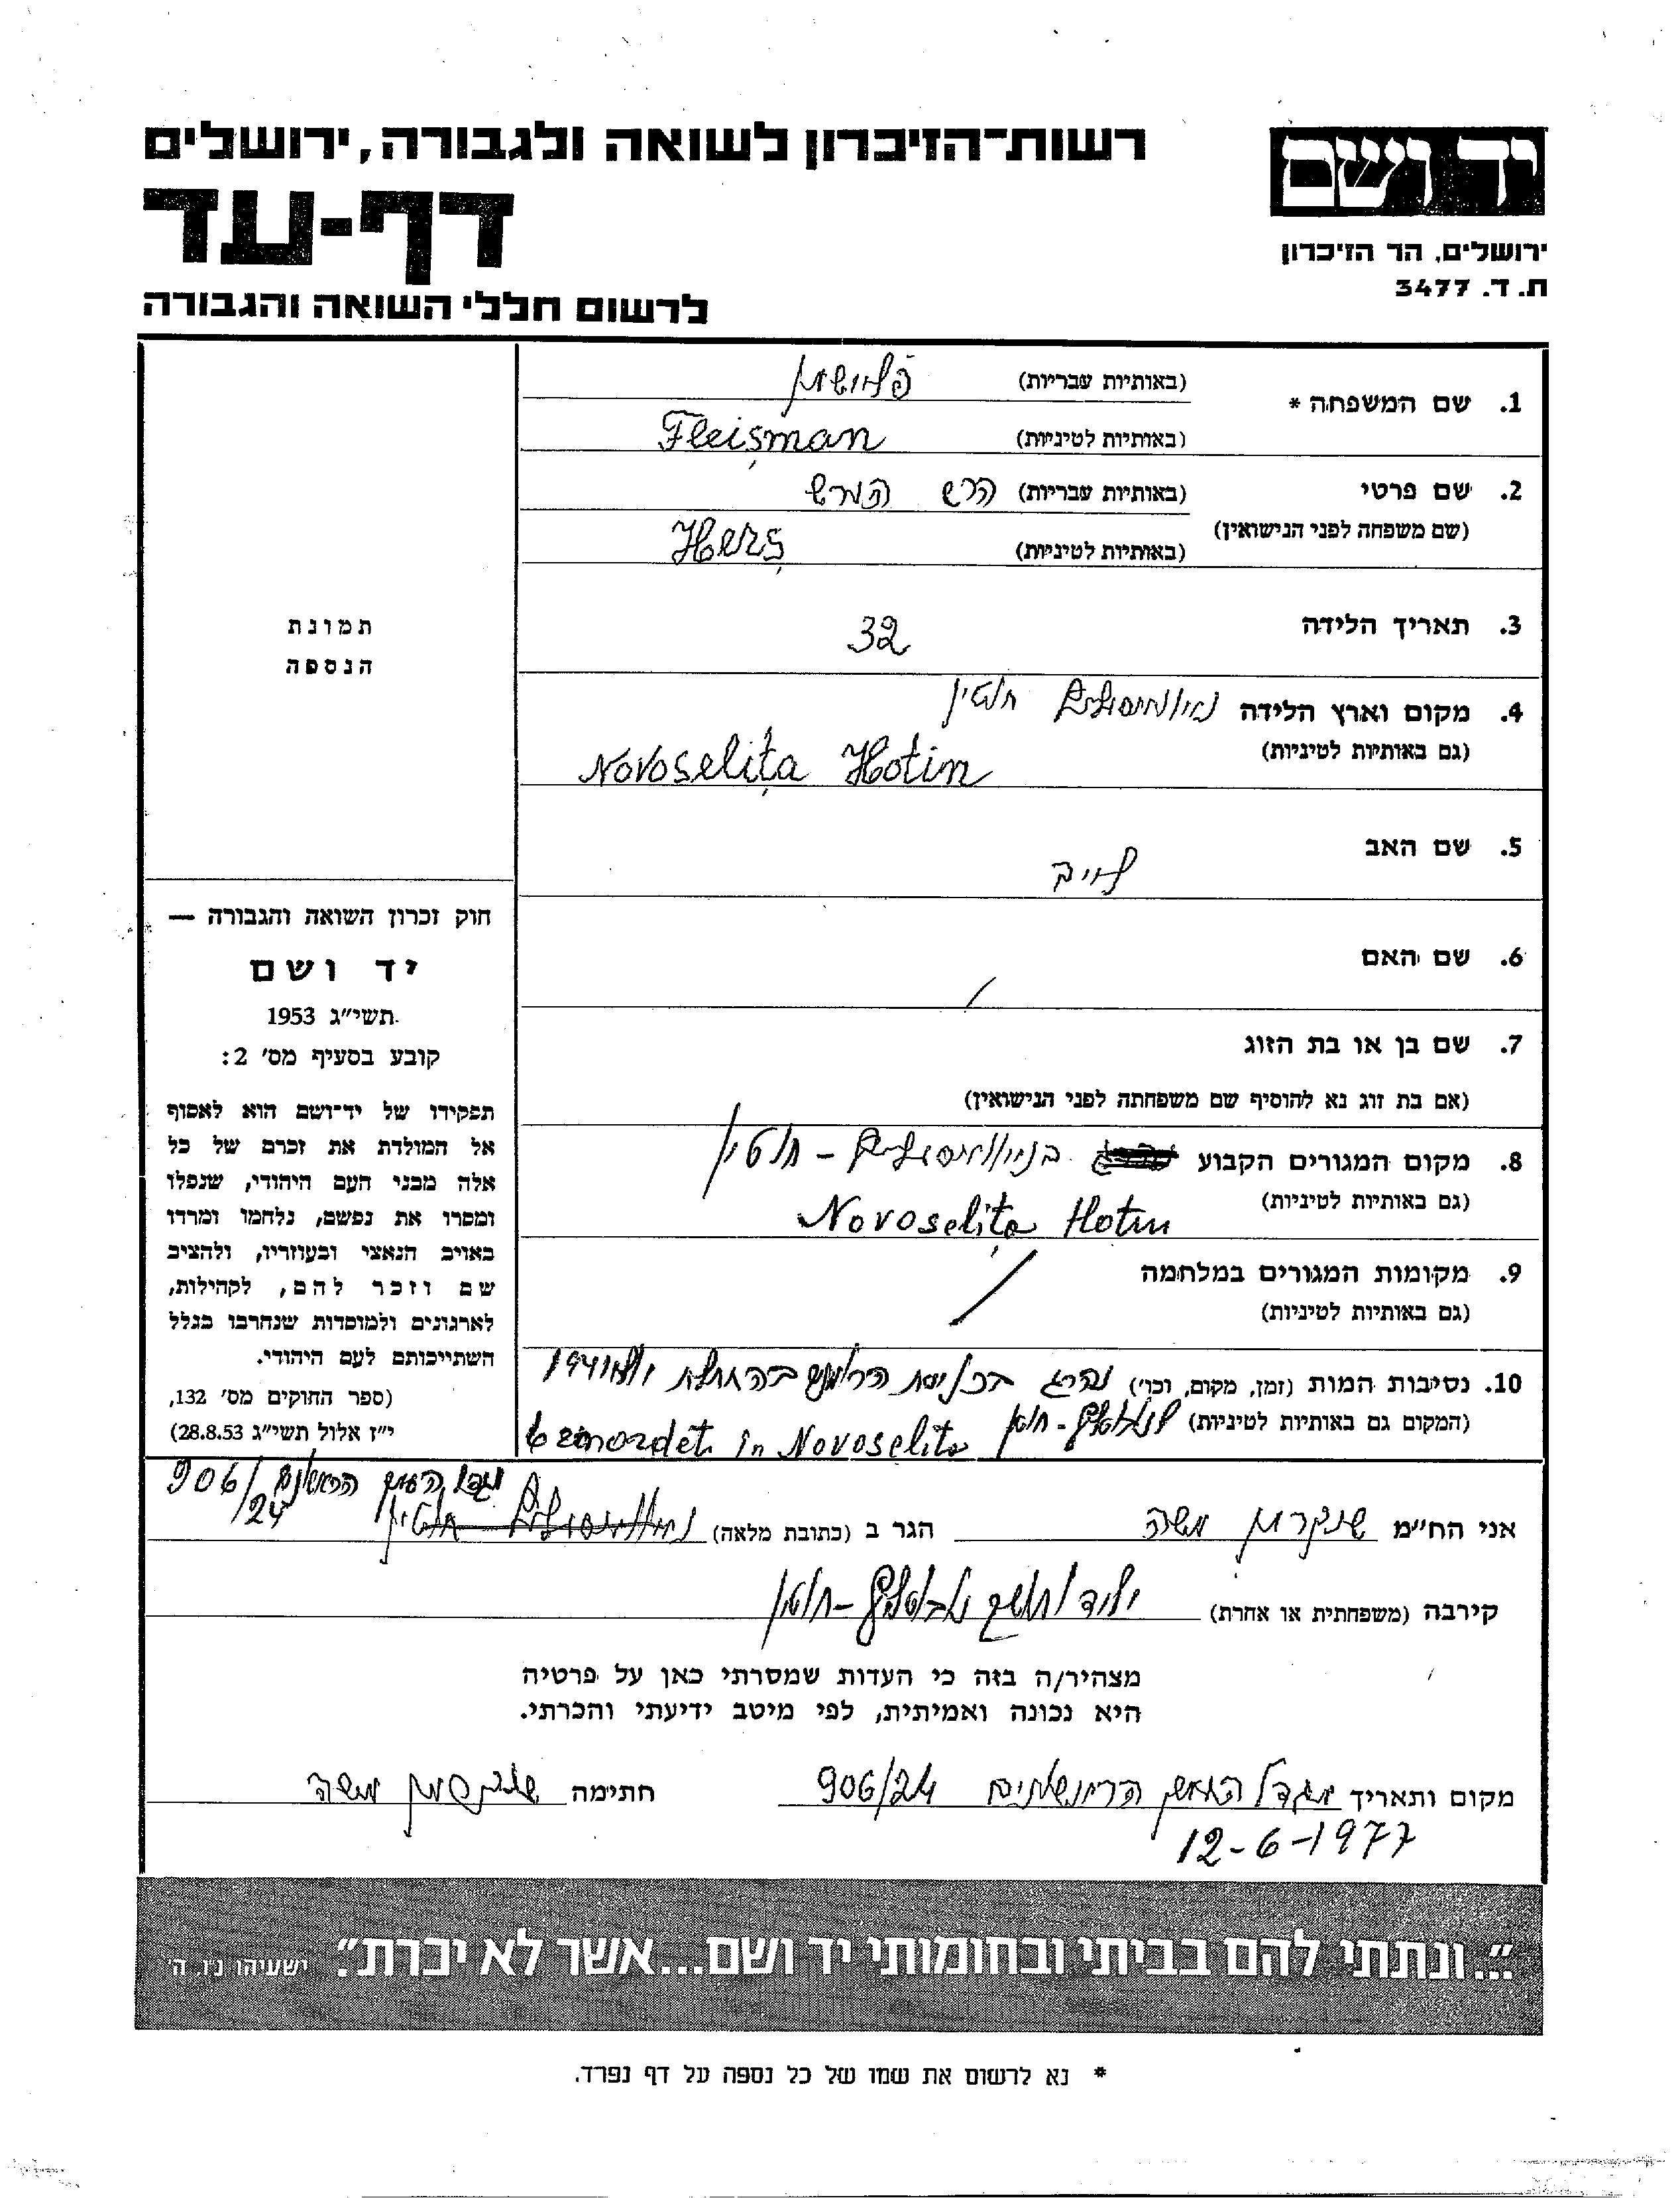 יד ושם
ירושלים, הר הזיכרון
ת. ד. 3477
רשות־הזיכרון לשואה ולגבורה, ירושלים
דף-עד
לרשום חללי השואה והגבורה
1. שם המשפחה * (באותיות עבריות) פליישמן
(באותיות לטיניות) Fleişman
2. שם פרטי (באותיות עבריות) הרש
(שם משפחה לפני הנישואין)
(באותיות לטיניות) Herş
3. תאריך הלידה 32
4. מקום וארץ הלידה חוטין
(גם באותיות לטיניות) Novoseliţa Hotin
5. שם האב לייב
6. שם האם /
7. שם בן או בת הזוג
(אם בת זוג נא להוסיף שם משפחתה לפני הנישואין)
8. מקום המגורים הקבוע - חוטין
(גם באותיות לטיניות) Novoseliţa Hotin
9. מקומות המגורים במלחמה /
(גם באותיות לטיניות)
10. נסיבות המות (זמן, מקום, וכו') נהרג בכניסת בהתחלת 1941
(המקום גם באותיות לטיניות) - חוטין in Novoselita
תמונת
הנספה
חוק זכרון השואה והגבורה —
יד ושם
תשי"ג 1953
קובע בסעיף מס' 2:
תפקידו של יד־ושם הוא לאסוף
אל המולדת את זכרם של כל
אלה מבני העם היהודי, שנפלו
ומסרו את נפשם, נלחמו ומרדו
באויב הנאצי ובעוזריו, ולהציב
שם וזכר להם, לקהילות,
לארגונים ולמוסדות שנחרבו בגלל
השתייכותם לעם היהודי.
(ספר החוקים מס' 132,
י"ז אלול תשי"ג 28.8.53)
906/24
אני הח"מ משה הגר ב (כתובת מלאה)
קירבה (משפחתית או אחרת) יליד ותושב - חוטין
מצהיר/ה בזה כי העדות שמסרתי כאן על פרטיה
היא נכונה ואמיתית, לפי מיטב ידיעתי והכרתי.
מקום ותאריך מגדל העמק 906/24 חתימה משה
12-6-1977
"...ונתתי להם בביתי ובחומותי יד ושם...אשר לא יכרת". ישעיהו נו, ה'
* נא לרשום את שמו של כל נספה על דף נפרד.